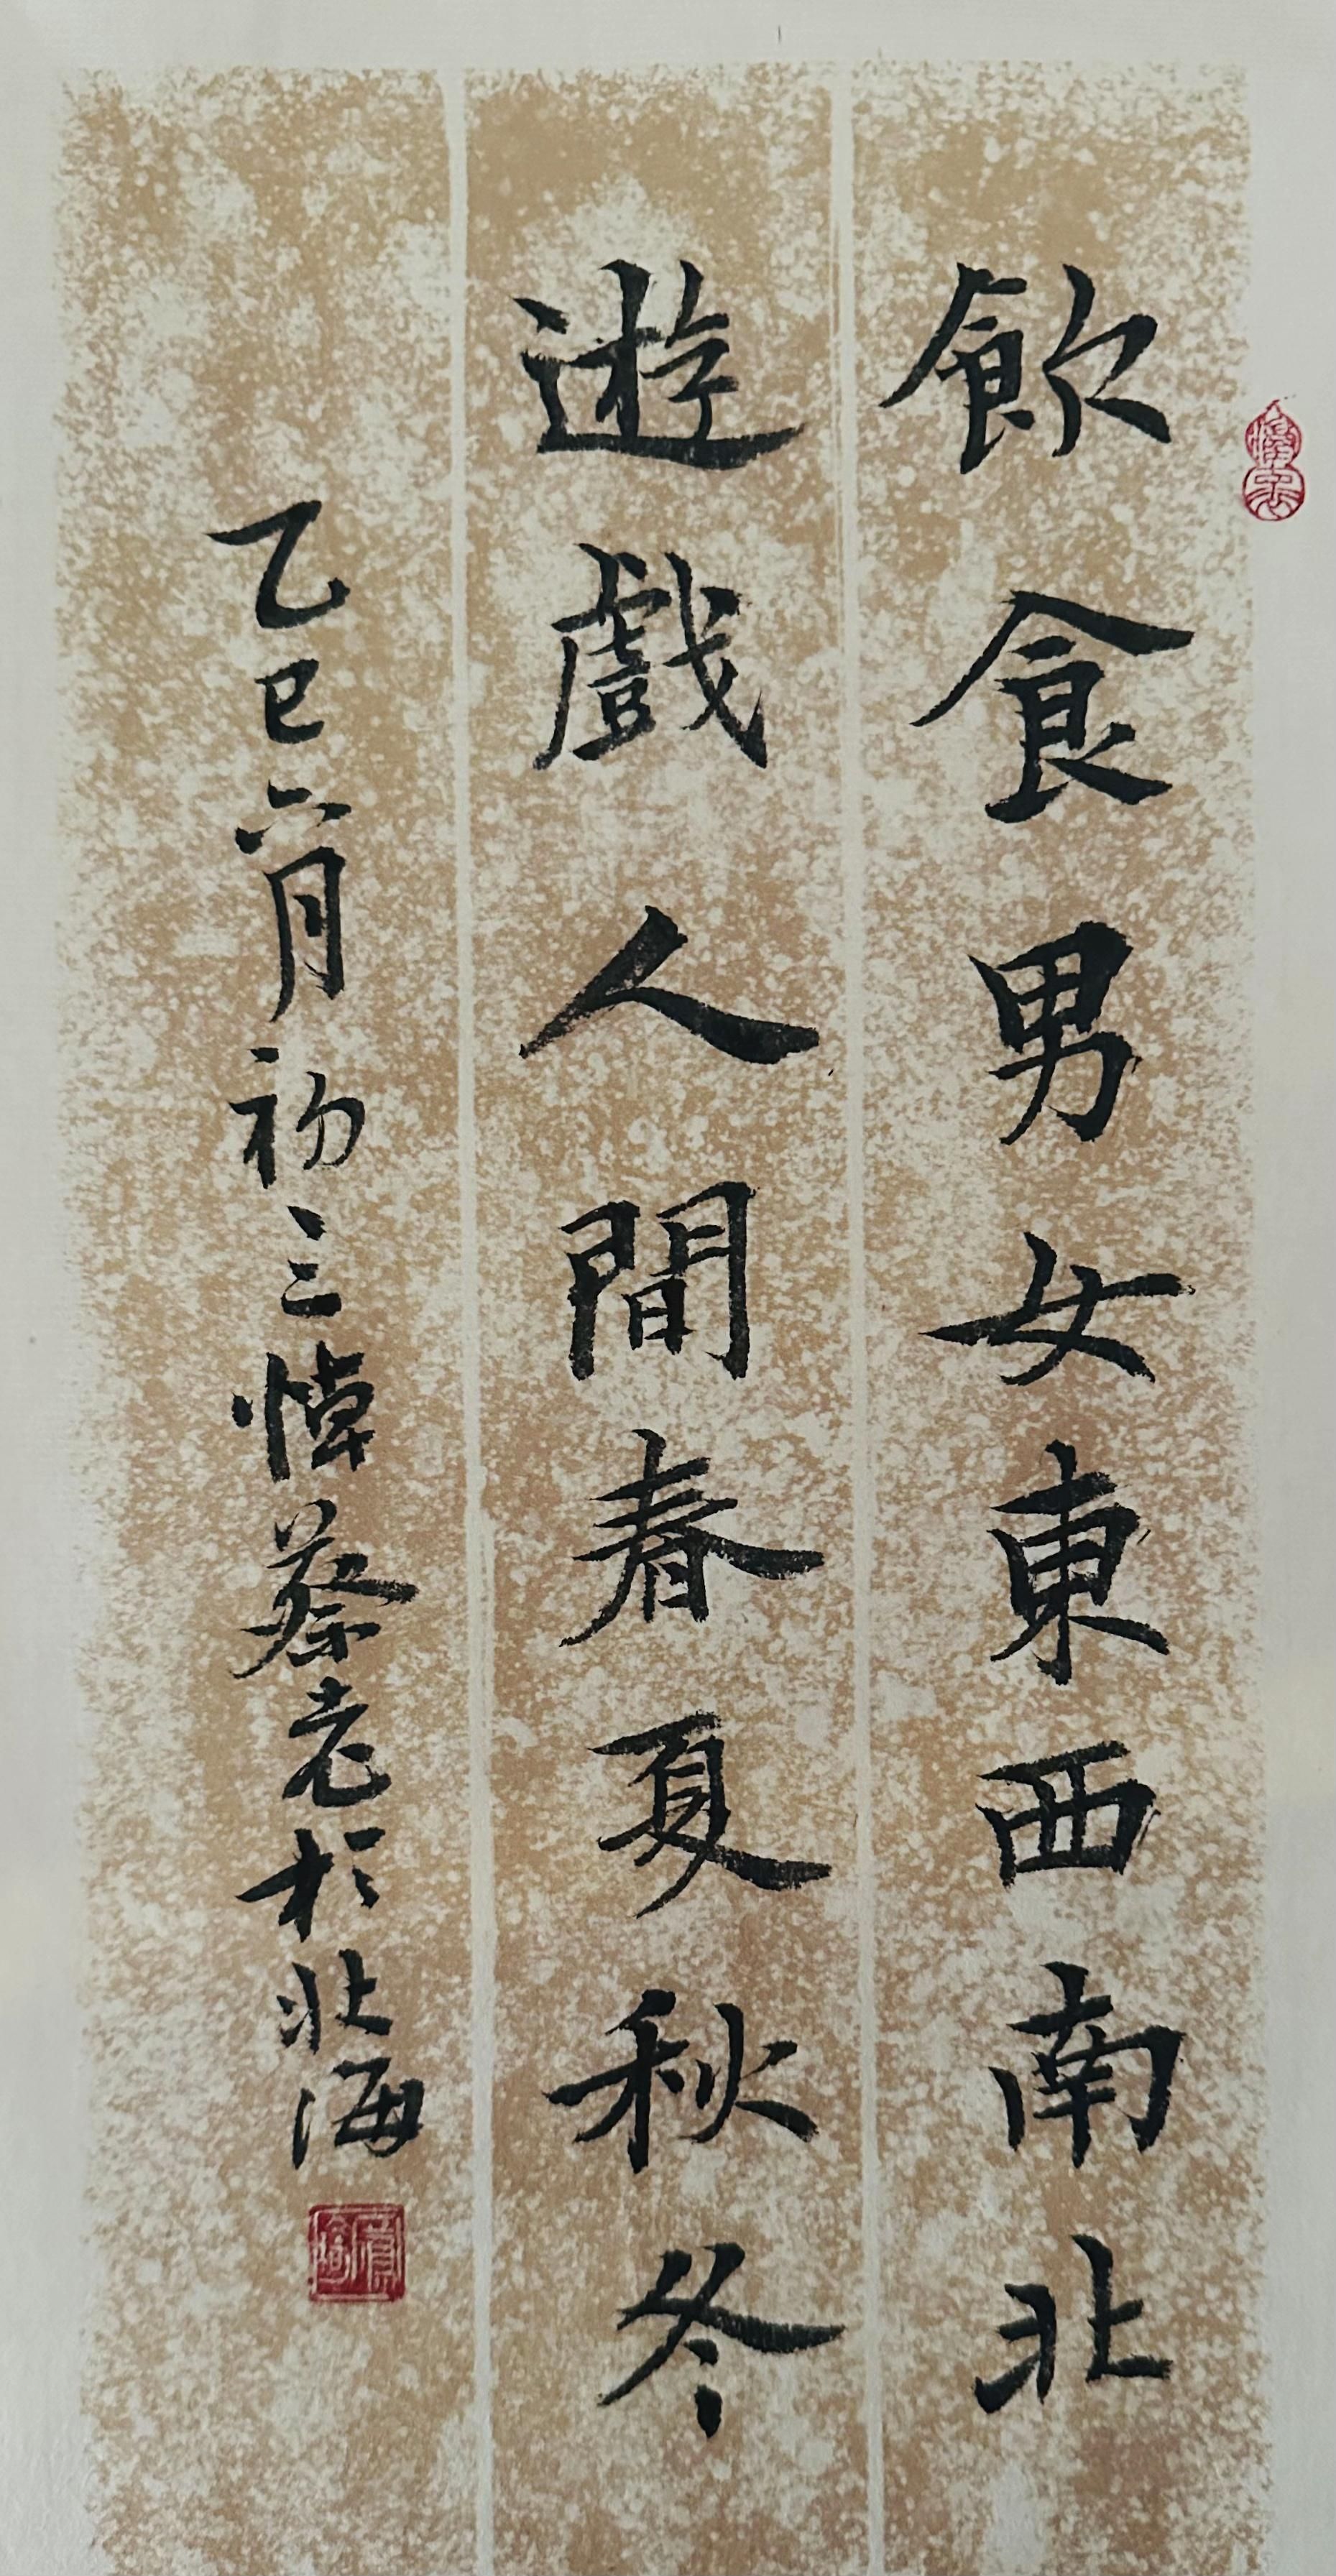 飲食男女東西南北
遊戲人間春夏秋冬
乙巳六月初三悼蔡老於北海